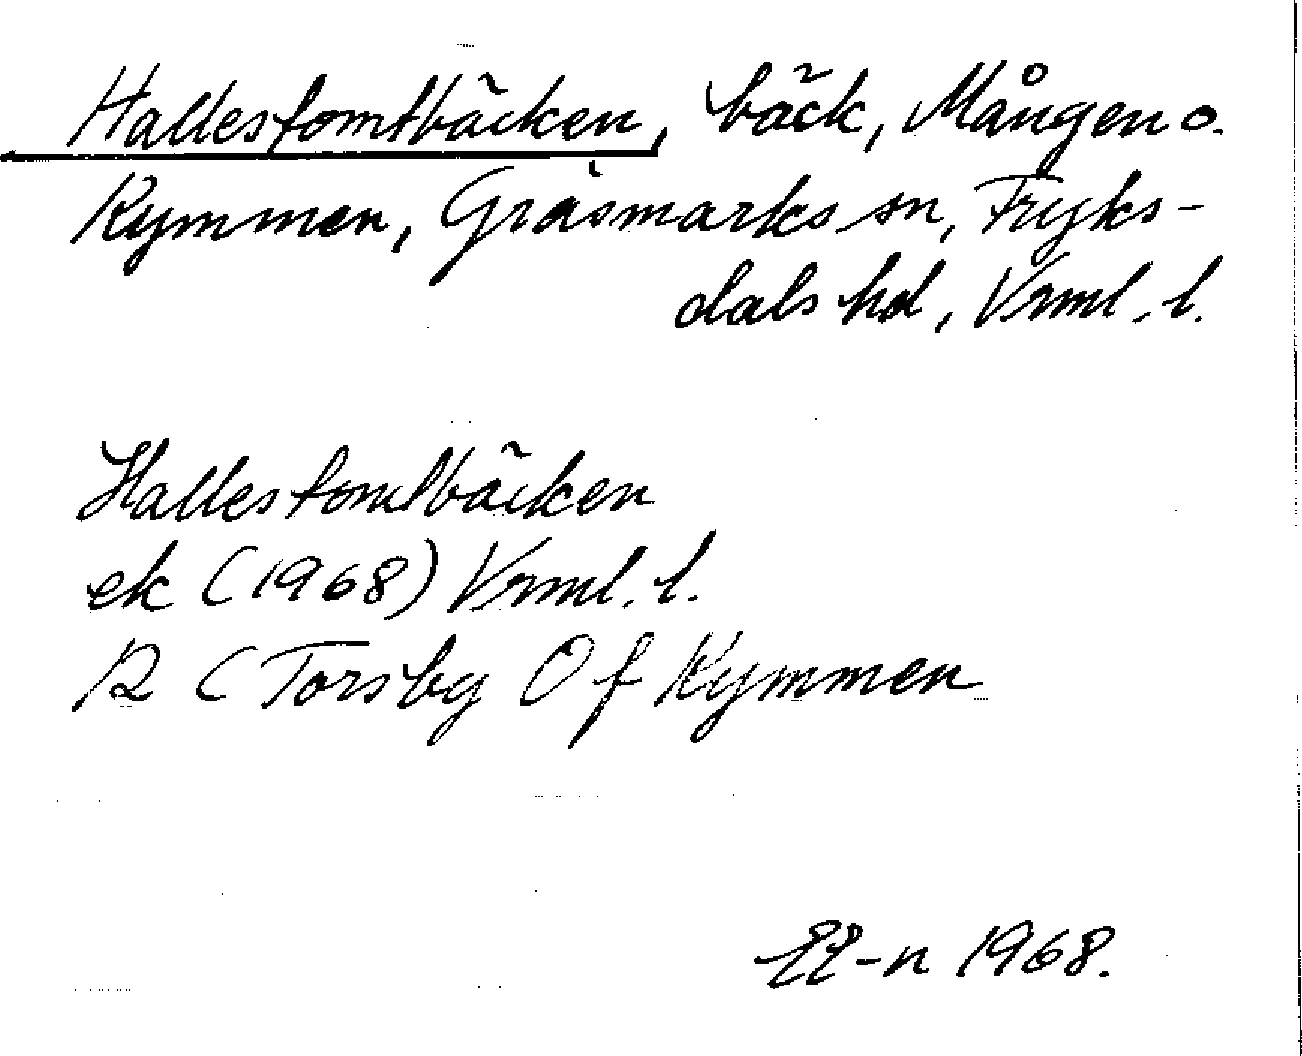 Hallestomtbäcken, bäck, Mången o.
Kymmen, Gräsmarks sn, Fryks-
dals hd, Vrml. l.
Hallestomtbäcken
ek (1968) Vrml. l.
R (Torsby Öf Kymmen
EE-n 1968.